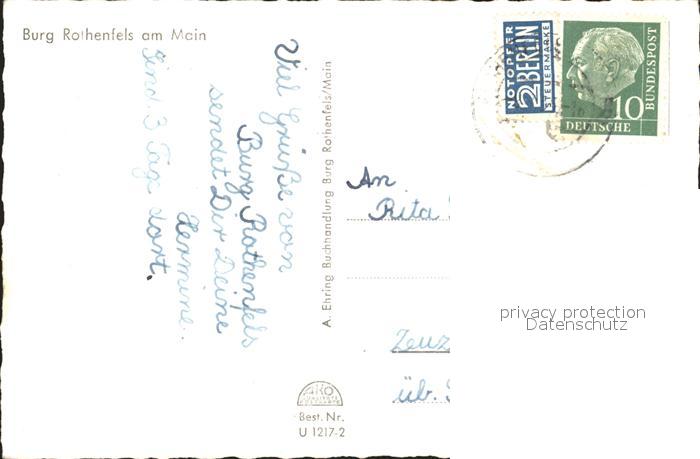 Burg Rothenfels am Main
Viel Grüße von
Burg Rothenfels
sendet Dir Deine
Hermine.
Sind 3 Tage dort.
A. Ehring Buchhandlung Burg Rothenfels/Main
NOTOPFER
2 BERLIN
STEUERMARKE
10
DEUTSCHE
BUNDESPOST
An
Rita
Zeuz
üb.
privacy protection
Datenschutz
AKO
Best. Nr.
U 1217-2